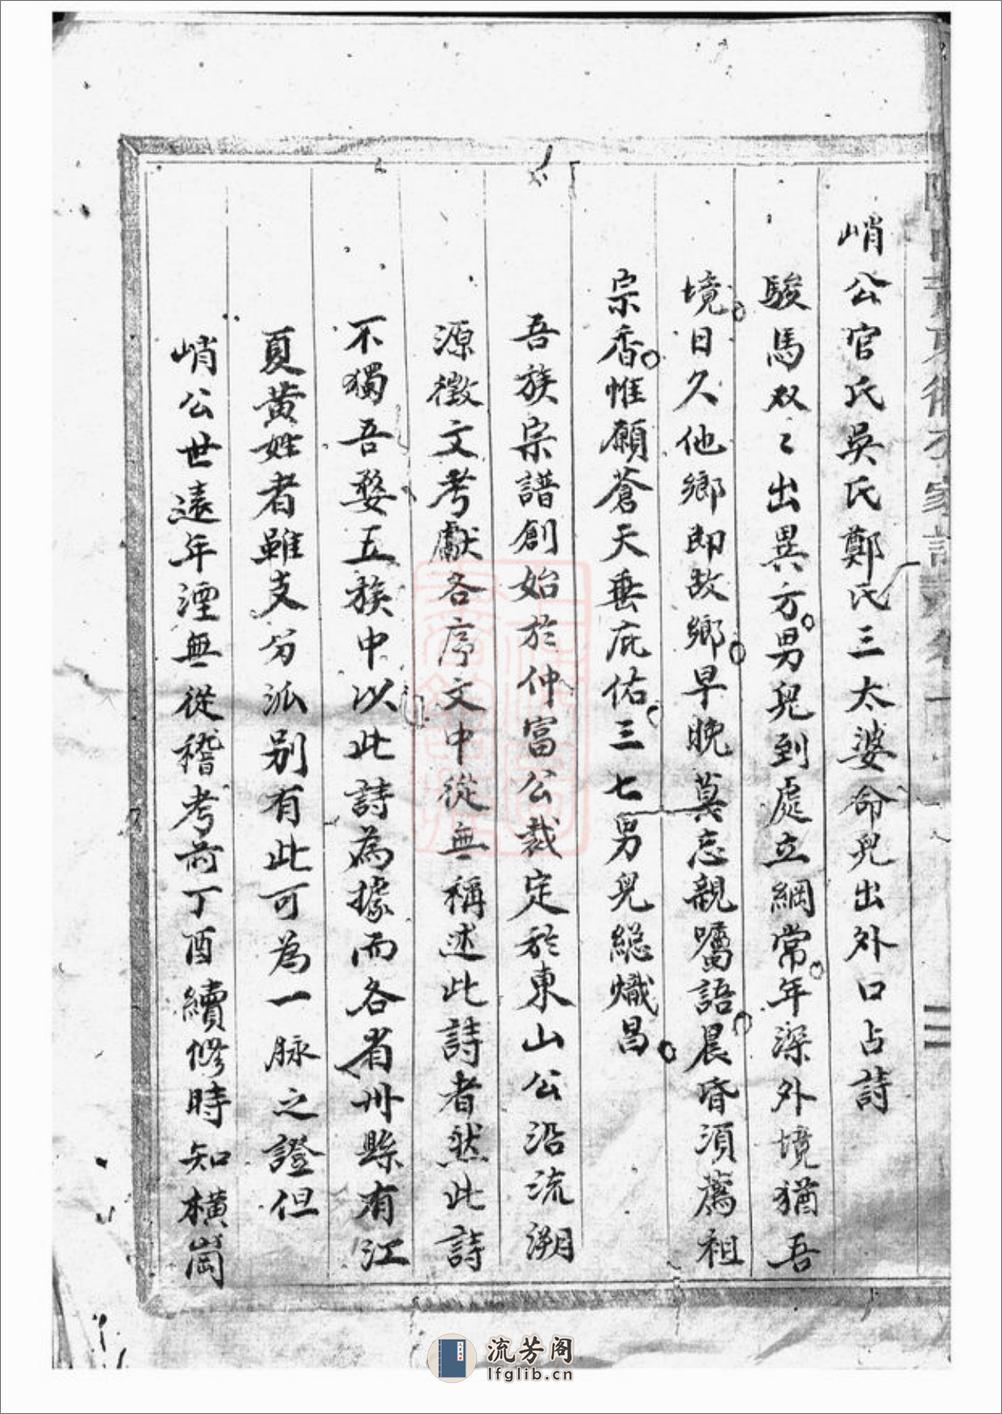 峭公官氏吳氏鄭氏三太婆命兒出外口占詩
駿馬双〻出異方男兒到處立綱常年深外境猶吾
境日久他鄉即故鄉早晚莫忘親囑語晨昏須薦祖
宗香惟願蒼天垂庇佑三七男兒総熾昌
吾族宗譜創始於仲富公裁定於東山公沿流溯
源徵文考獻各序文中從無稱述此詩者然此詩
不獨吾婺五族中以此詩為據而各省州縣有江
夏黄姓者雖支分派别有此可為一脉之證但
峭公世遠年湮無從稽考前丁酉續修時知橫崗
流芳阁
lfglib.cn